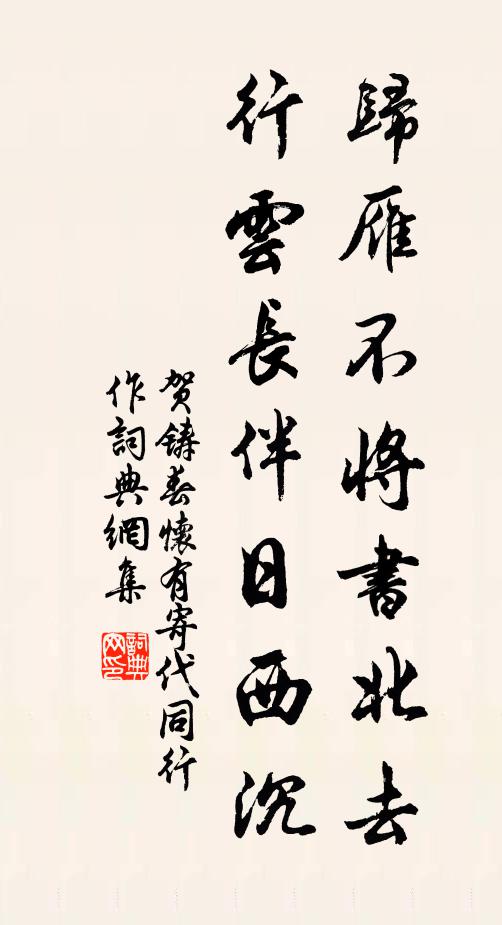 歸雁不將書北去
行雲長伴日西沉
賀鑄春懷有寄代同行
作詞典網集
詞典
网印